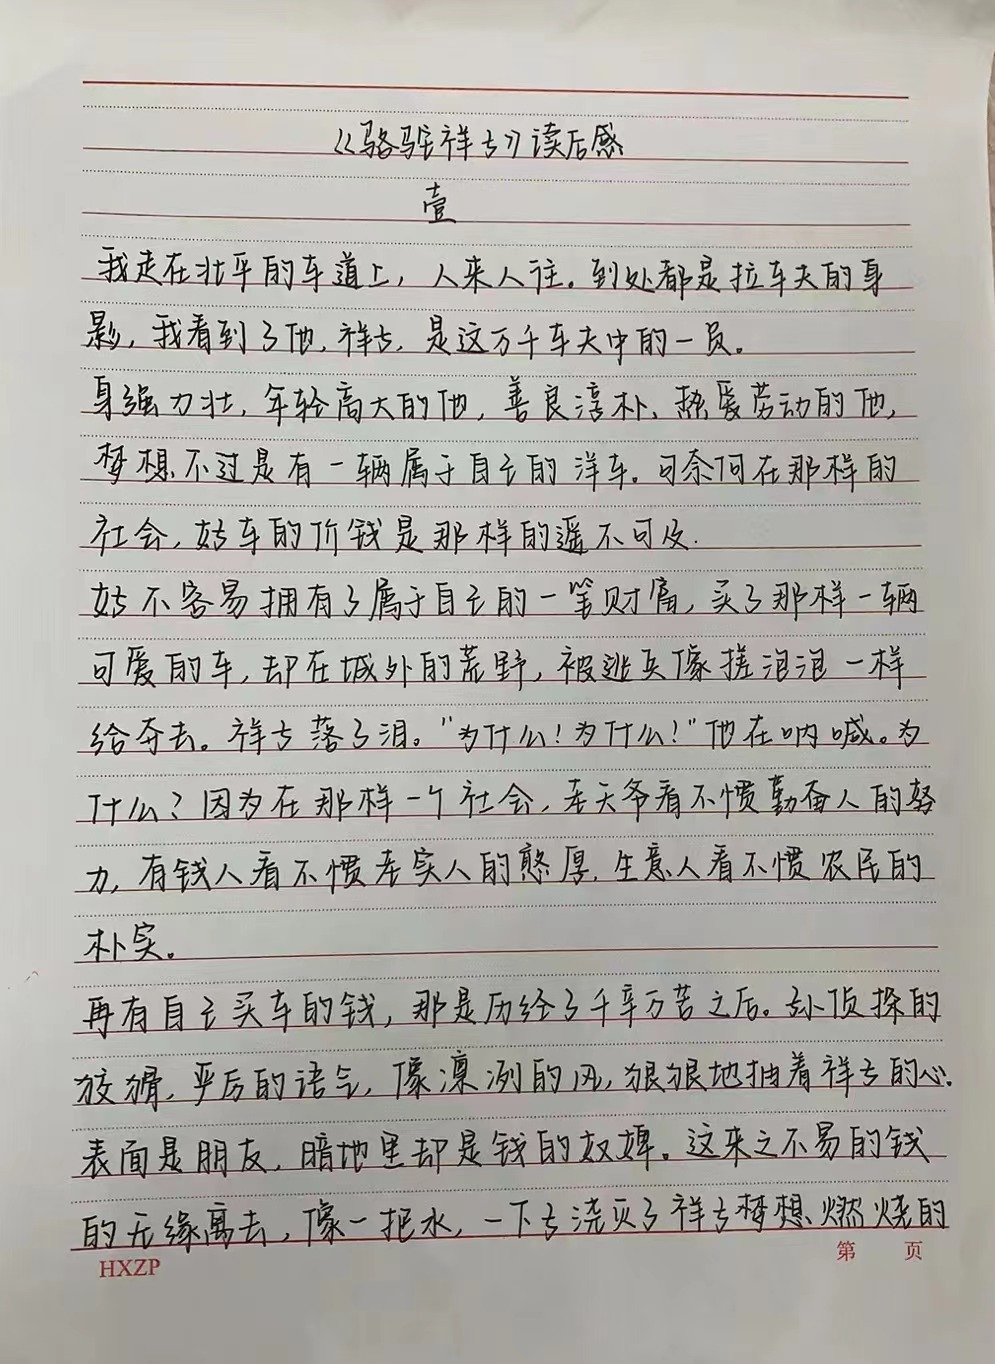 《骆驼祥子》读后感
壹
我走在北平的车道上，人来人往。到处都是拉车夫的身
影，我看到了他，祥子，是这万千车夫中的一员。
身强力壮，年轻高大的他，善良淳朴、热爱劳动的他，
梦想不过是有一辆属于自己的洋车。可奈何在那样的
社会，好车的价钱是那样的遥不可及.
好不容易拥有了属于自己的一笔财富，买了那样一辆
可爱的车，却在城外的荒野，被逃兵像搓泡泡一样
给夺去。祥子落了泪。“为什么！为什么！”他在呐喊。为
什么？因为在那样一个社会，老天爷看不惯勤奋人的努
力，有钱人看不惯老实人的憨厚，生意人看不惯农民的
朴实。
再有自己买车的钱，那是历经了千辛万苦之后。孙侦探的
狡猾，严厉的语气，像凛冽的风，狠狠地抽着祥子的心.
表面是朋友，暗地里却是钱的奴婢。这来之不易的钱
的无缘离去，像一把水，一下子浇灭了祥子梦想、燃烧的
HXZP
第 页